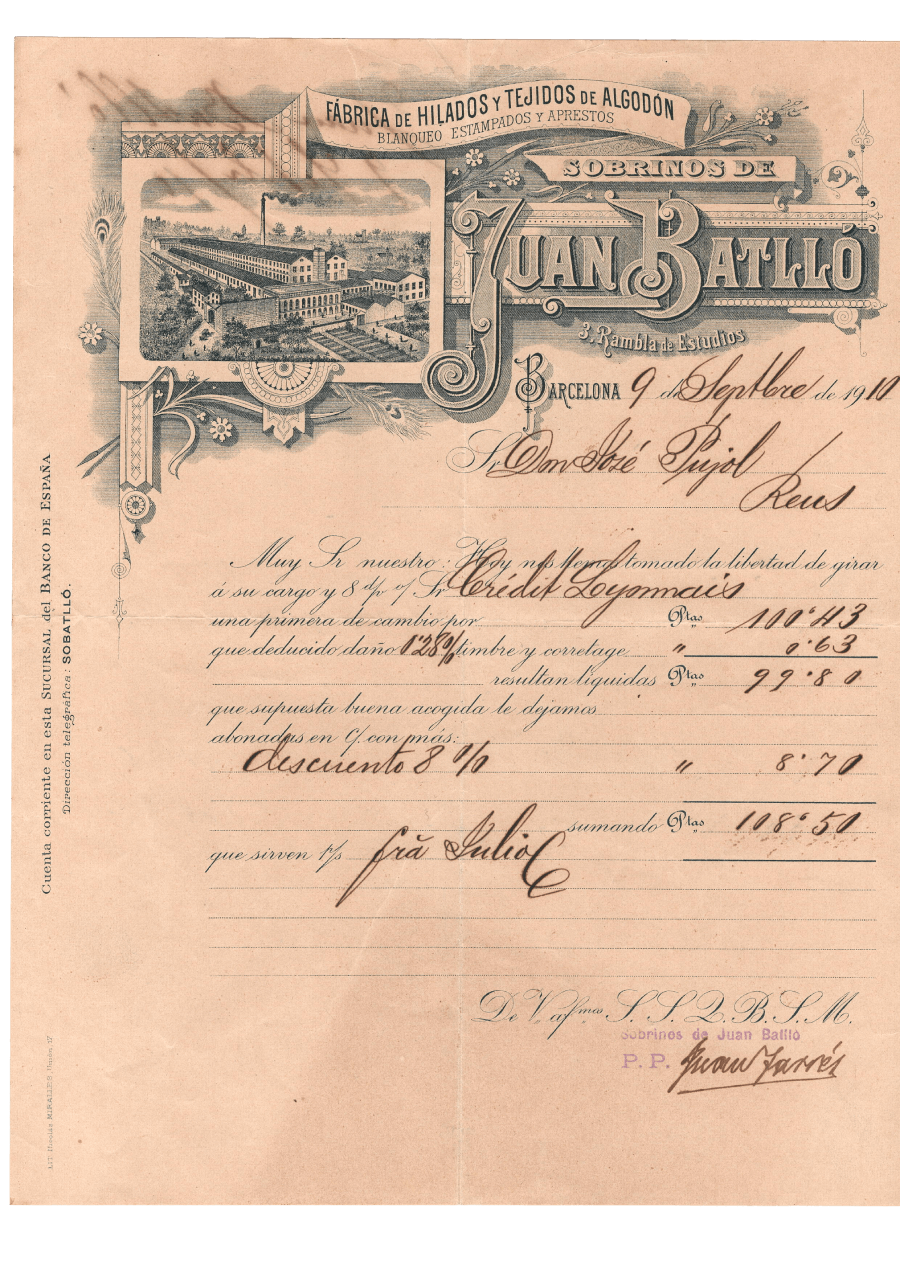 FÁBRICA DE HILADOS Y TEJIDOS DE ALGODÓN
BLANQUEO ESTAMPADOS Y APRESTOS
SOBRINOS DE
JUAN BATLLÓ
3, Rambla de Estudios
BARCELONA 9 de Septbre de 1910
Sr Don José Pujol
Reus
Muy Sr nuestro: Hoy nos hemos tomado la libertad de girar
á su cargo y 8 d/v o/ Sr Crédit Lyonnais
una primera de cambio por Ptas 100'43
que deducido daño 1'28% timbre y corretage " 0'63
resultan líquidas Ptas 99'80
que supuesta buena acogida le dejamos
abonadas en C/. con más:
descuento 8 % " 8'70
sumando Ptas 108'50
que sirven p/s fra Julio
De V. afmos S. S. Q. B. S. M.
Sobrinos de Juan Batlló
P. P. Juan Farrés
Cuenta corriente en esta SUCURSAL del BANCO DE ESPAÑA
Dirección telegráfica: SOBATLLÓ.
LIT. Nicolás MIRALLES, 17